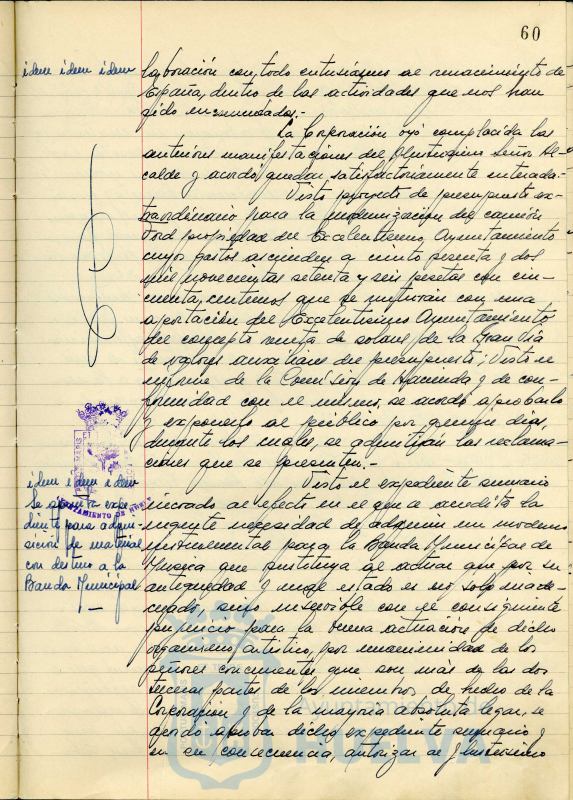 60
idem idem idem
laboración con todo entusiasmo al renacimiento de
España, dentro de las actividades que nos han
sido encomendadas.-
La Corporación oyó complacida las
anteriores manifestaciones del Ilustrísimo Señor Al-
calde y acordó quedar satisfactoriamente enterada.-
Visto proyecto de presupuesto ex-
traordinario para la modernización del camión
Ford propiedad del Excelentísimo Ayuntamiento
cuyos gastos ascienden a ciento sesenta y dos
mil novecientas setenta y seis pesetas con cin-
cuenta centimos que se nutrirán con una
aportación del Excelentísimo Ayuntamiento
del concepto venta de solares de la Gran Vía
de valores auxiliares del presupuesto; Visto el
informe de la Comisión de Hacienda y de con-
formidad con el mismo, se acordó aprobarlo
y exponerlo al público por quince días,
durante los cuales, se admitirán las reclama-
ciones que se presenten.-
idem idem idem
Se aprueba expe-
diente para adqui-
sición de material
con destino a la
Banda Municipal
Visto el expediente sumario
incoado al efecto en el que se acredita la
urgente necesidad de adquirir un moderno
instrumental para la Banda Municipal de
Musica que sustituya al actual que por su
antiguedad y mal estado es no solo inade-
cuado, sino inservible con el consiguiente
perjuicio para la buena actuación de dicho
organismo artístico, por unanimidad de los
señores concurrentes que son más de las dos
terceras partes de los miembros de hecho de la
Corporación y de la mayoría absoluta legal, se
acordó aprobar dicho expediente sumario y
en su consecuencia, autorizar al Ilustrísimo
Ayuntamiento de
HUELVA